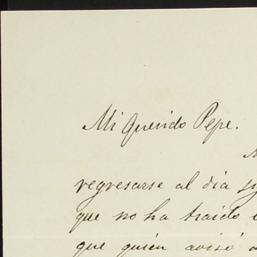 Mi Querido Pepe.
regresarse al dia
que no ha traido
que quien avisó a